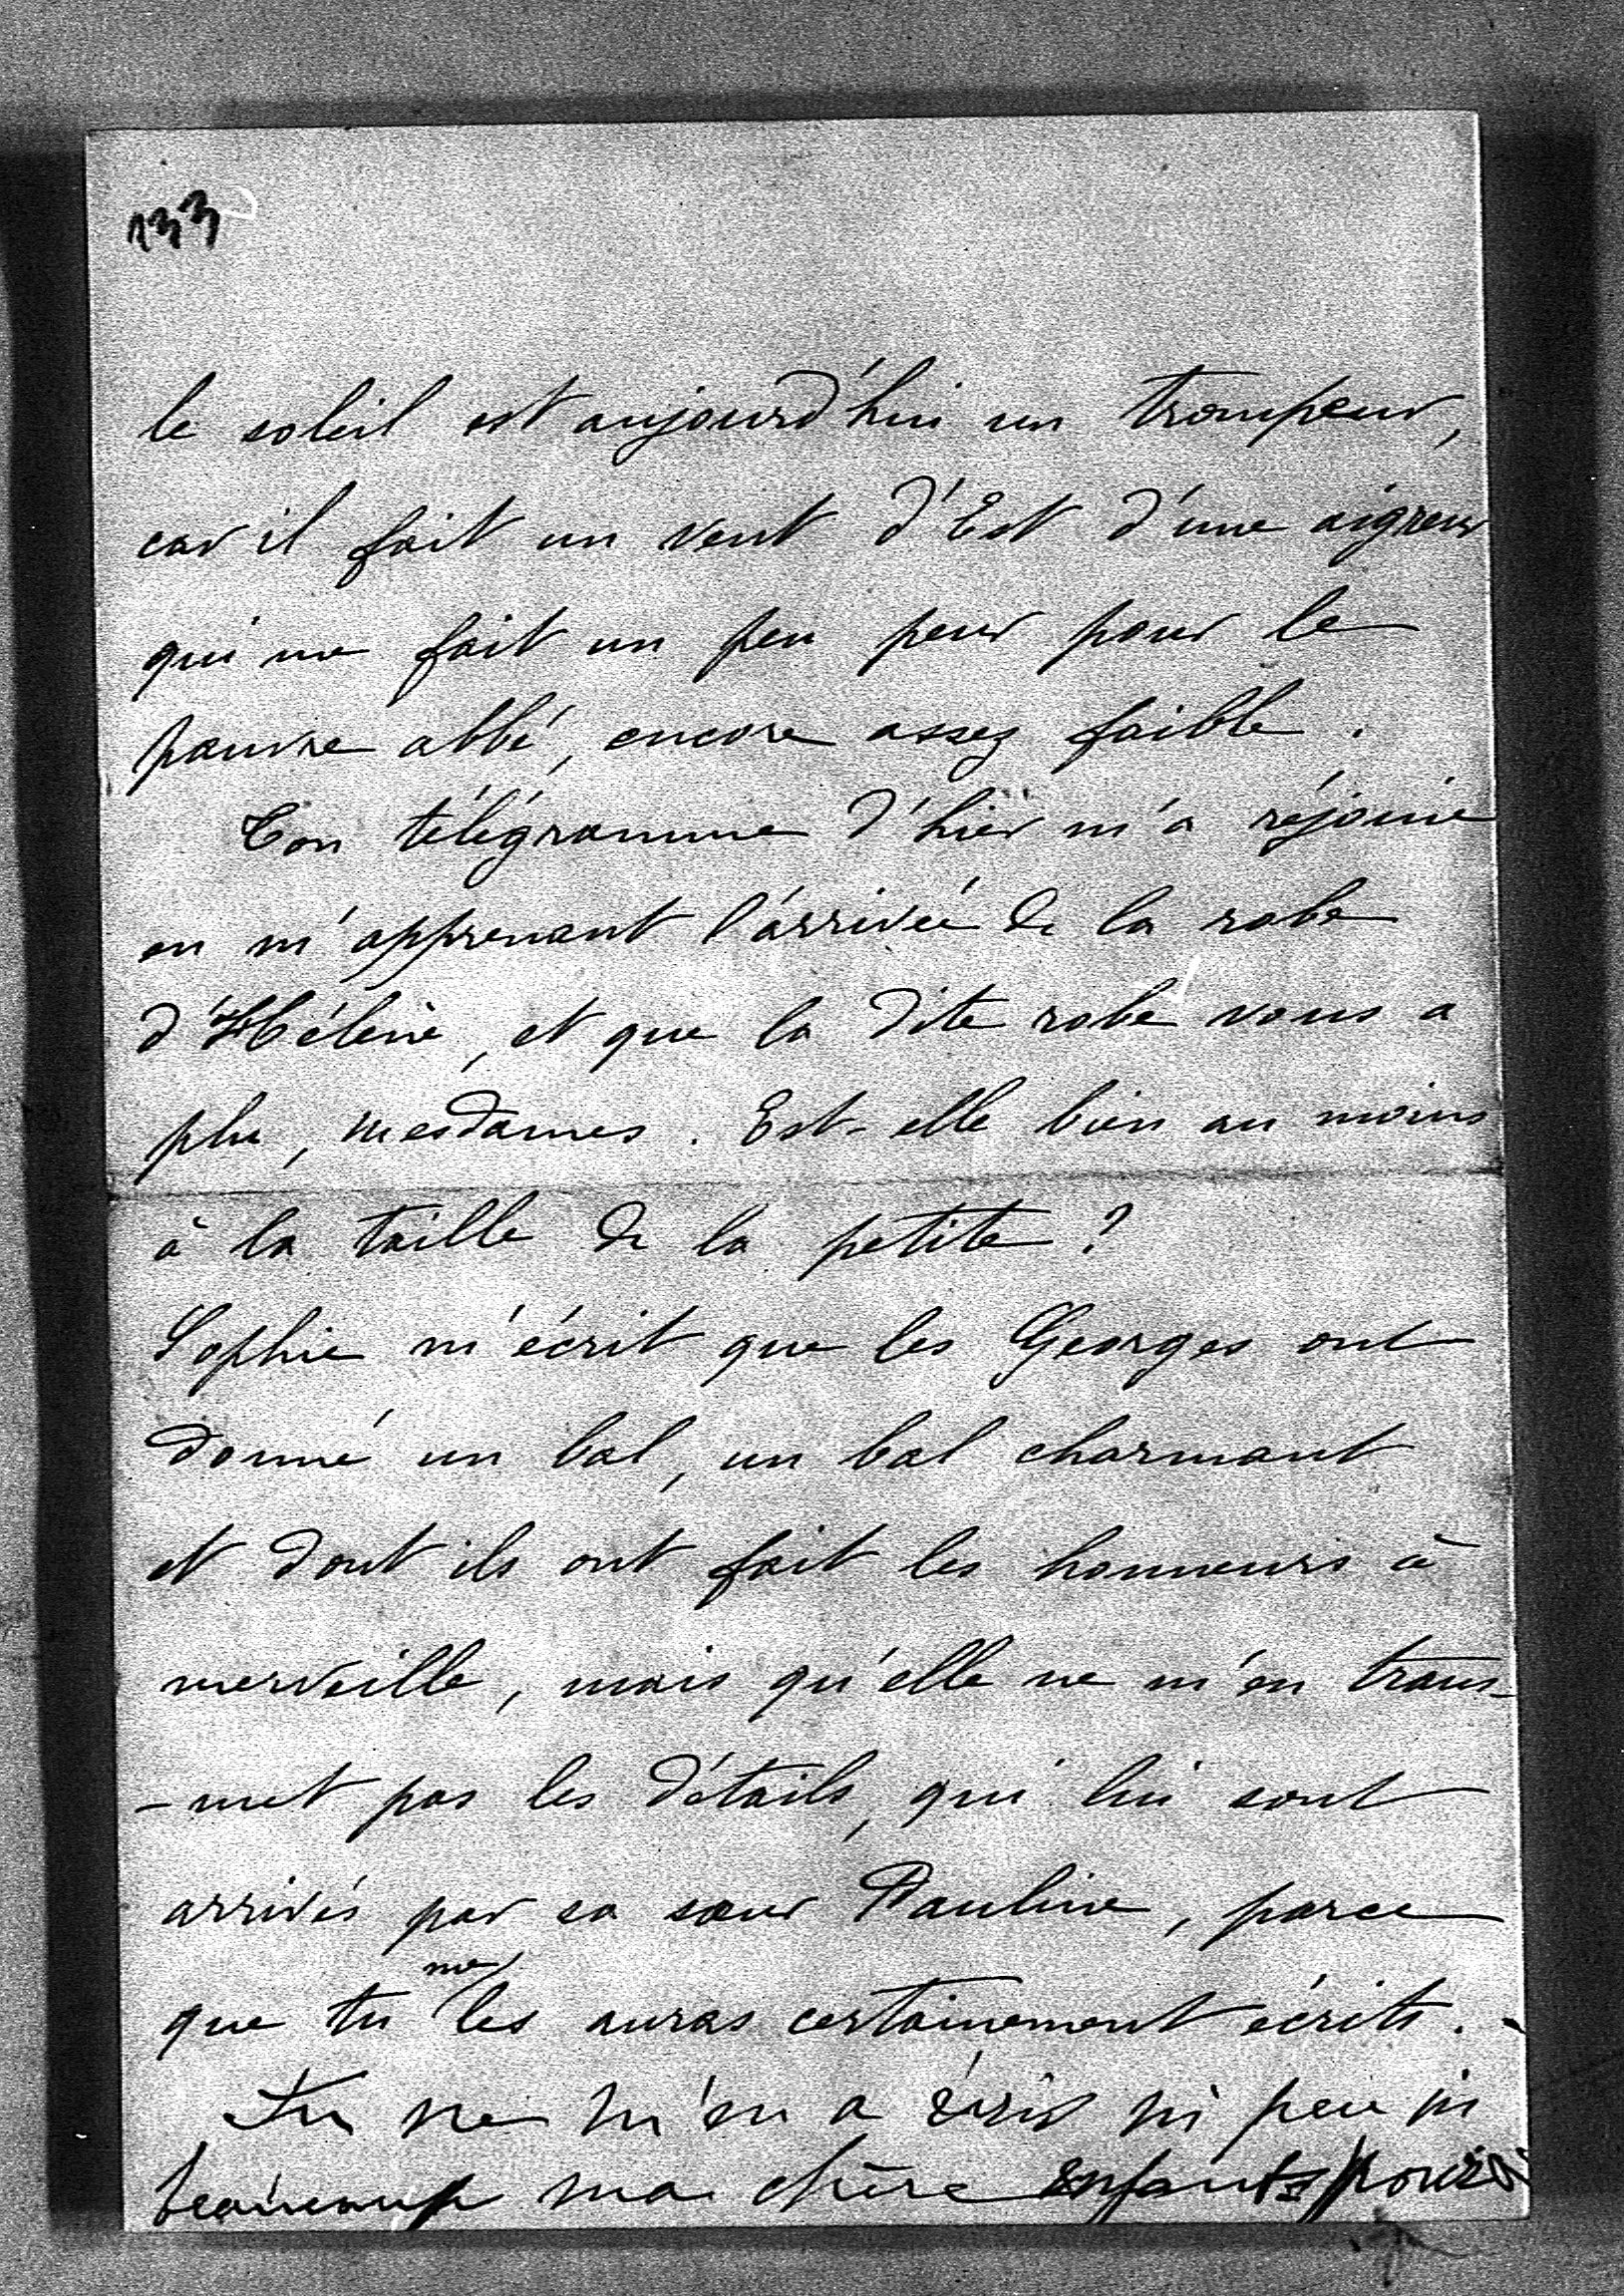 133
le soleil est aujourd'hui un trompeur,
car il fait un vent d'Est d'une aigreur
qui me fait un peu peur pour le
pauvre abbé, encore assez faible.
Ton télégramme d'hier m'a réjouie
en m'apprenant l'arrivée de la robe
d'Hélène, et que la dite robe vous a
plu, mesdames. Est-elle bien au moins
à la taille de la petite ?
Sophie m'écrit que les Georges ont
donné un bal, un bal charmant
et dont ils ont fait les honneurs à
merveille, mais qu'elle ne m'en trans-
-met pas les détails, qui lui sont
arrivés par sa sœur Pauline, parce
que tu me les auras certainement écrits.
Tu ne m'en a écris ni peu ni
beaucoup ma chère